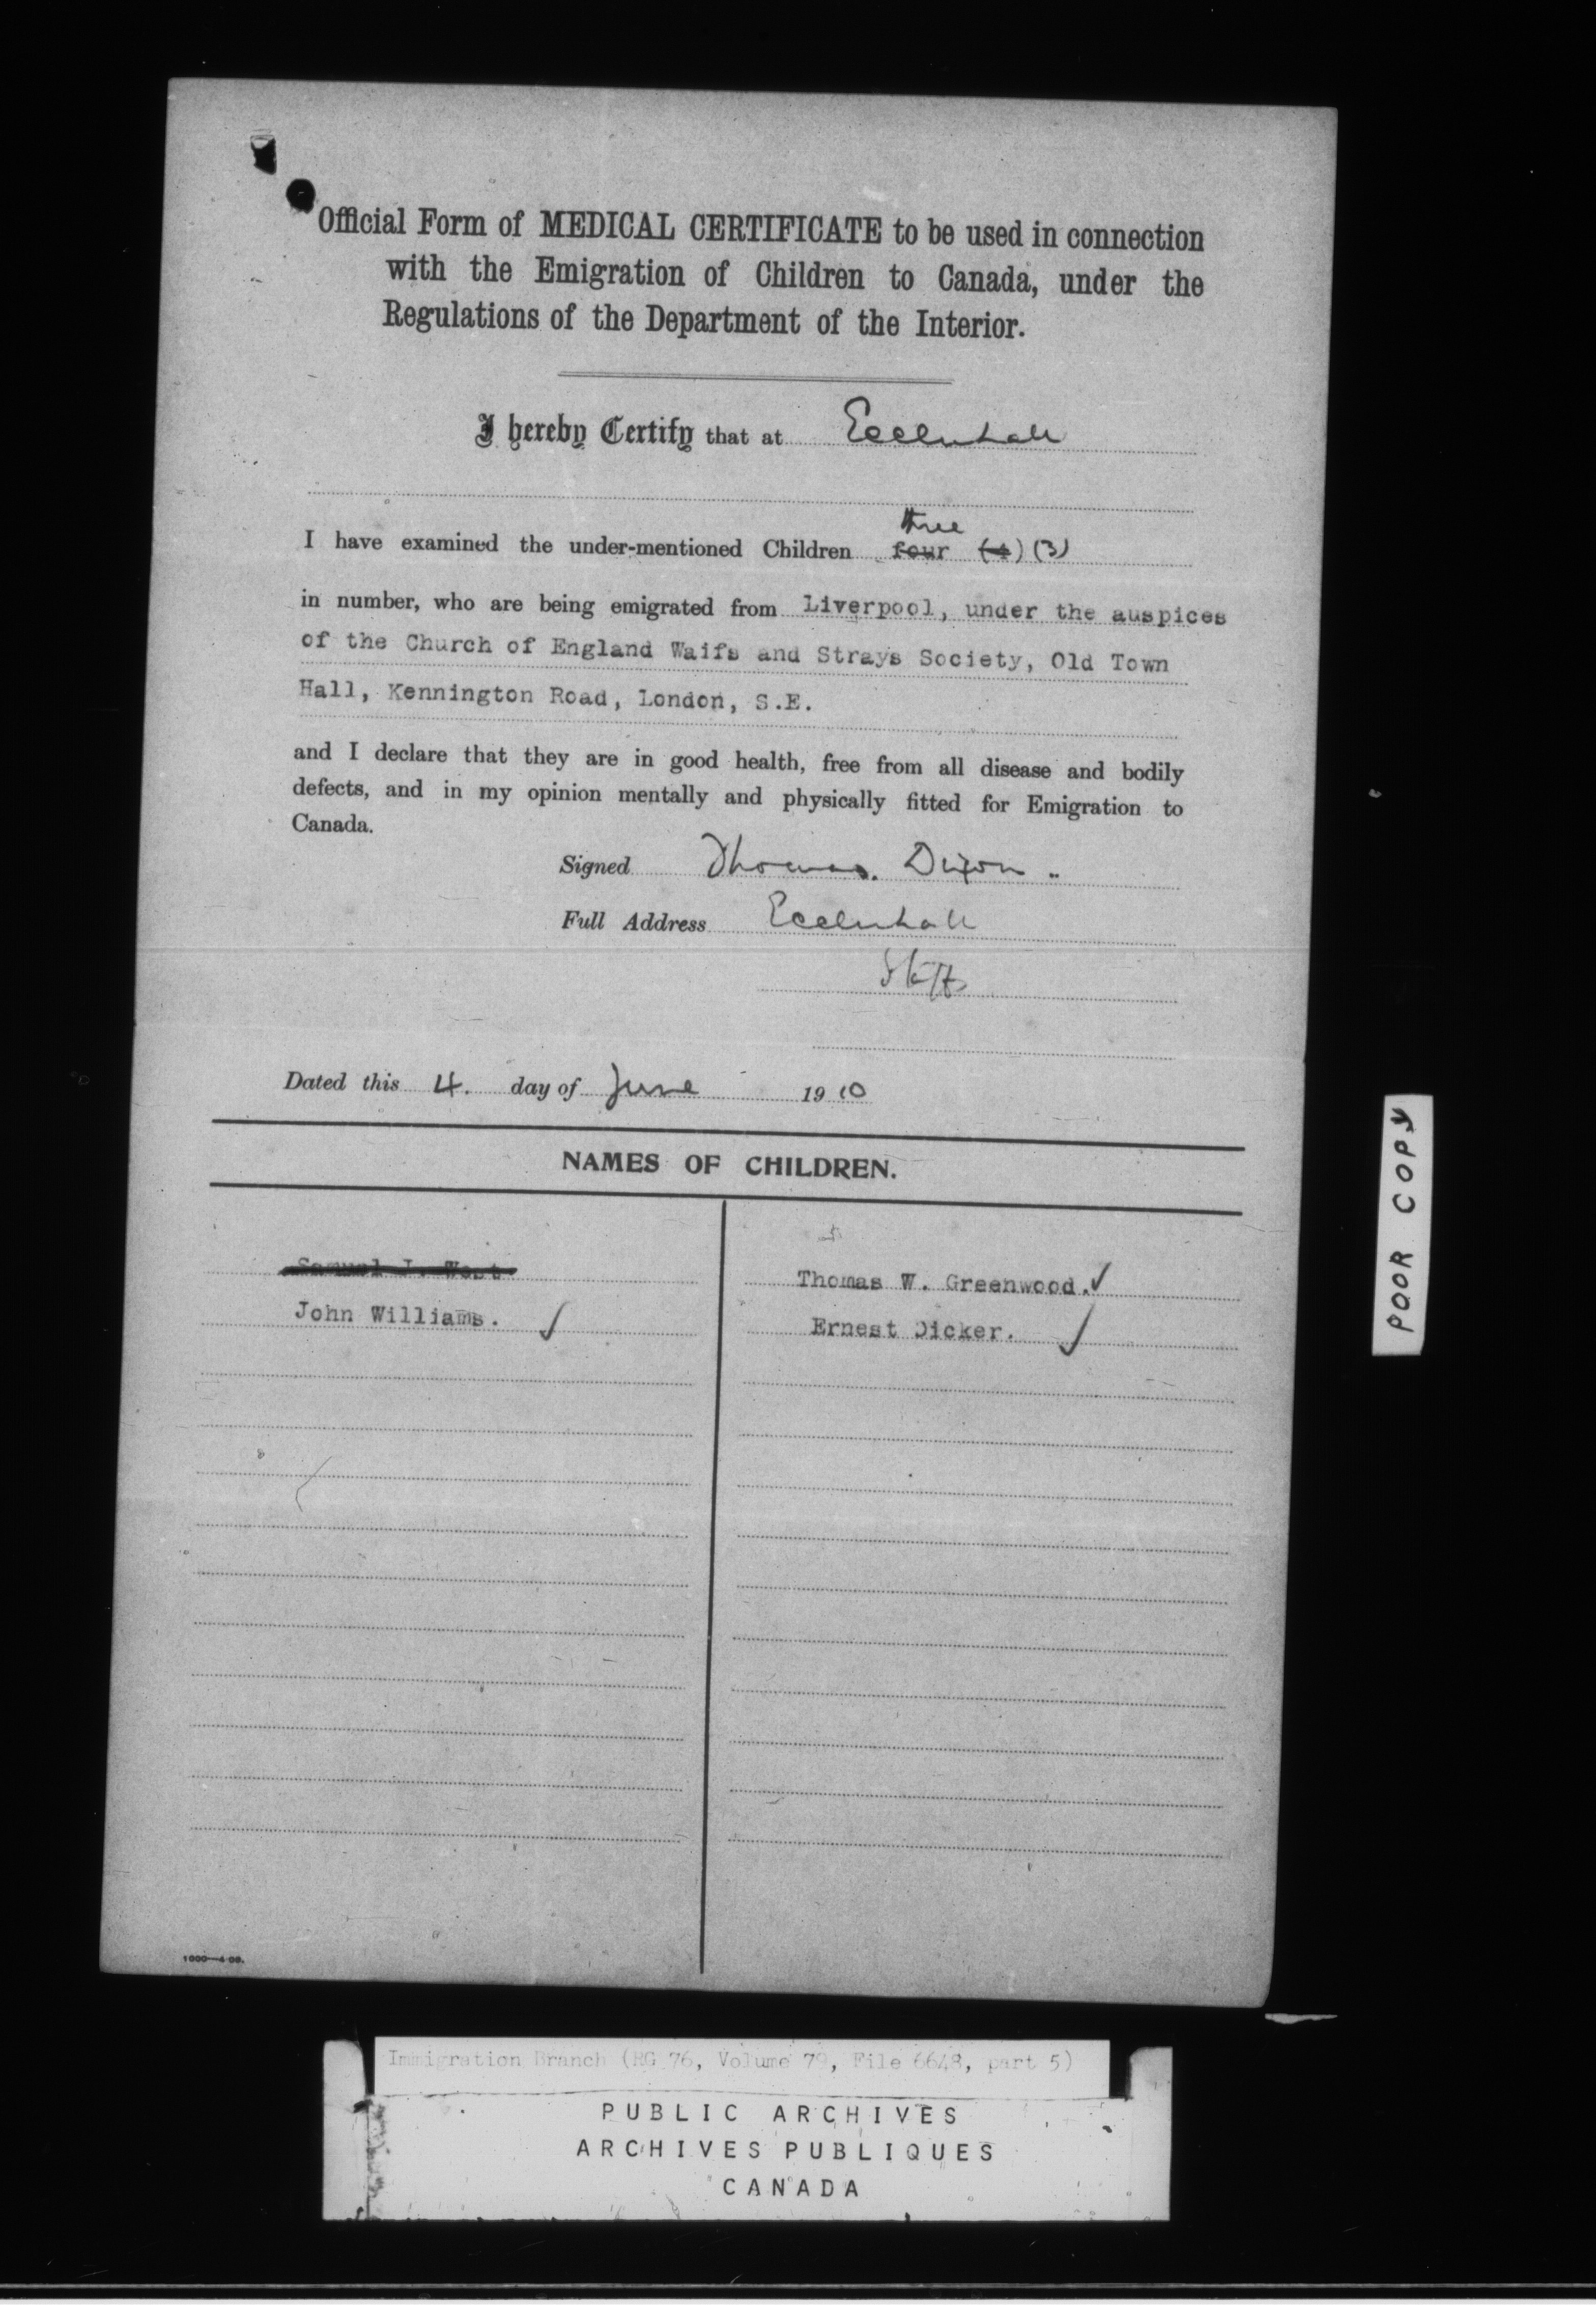 Official Form of MEDICAL CERTIFICATE to be used in connection
with the Emigration of Children to Canada, under the
Regulations of the Department of the Interior.
I hereby Certify that at Eccleshall
three
I have examined the under-mentioned Children four (4) (3)
in number, who are being emigrated from Liverpool, under the auspices
of the Church of England Waifs and Strays Society, Old Town
Hall, Kennington Road, London, S.E.
and I declare that they are in good health, free from all disease and bodily
defects, and in my opinion mentally and physically fitted for Emigration to
Canada.
Signed Thomas. Dixon
Full Address Eccleshall
Staffs
Dated this 4. day of June 1910
NAMES OF CHILDREN.
Samuel J. West
Thomas W. Greenwood. ✓
John Williams. ✓
Ernest Dicker. ✓
POOR COPY
Immigration Branch (RG 76, Volume 79, File 6648, part 5)
PUBLIC ARCHIVES
ARCHIVES PUBLIQUES
CANADA